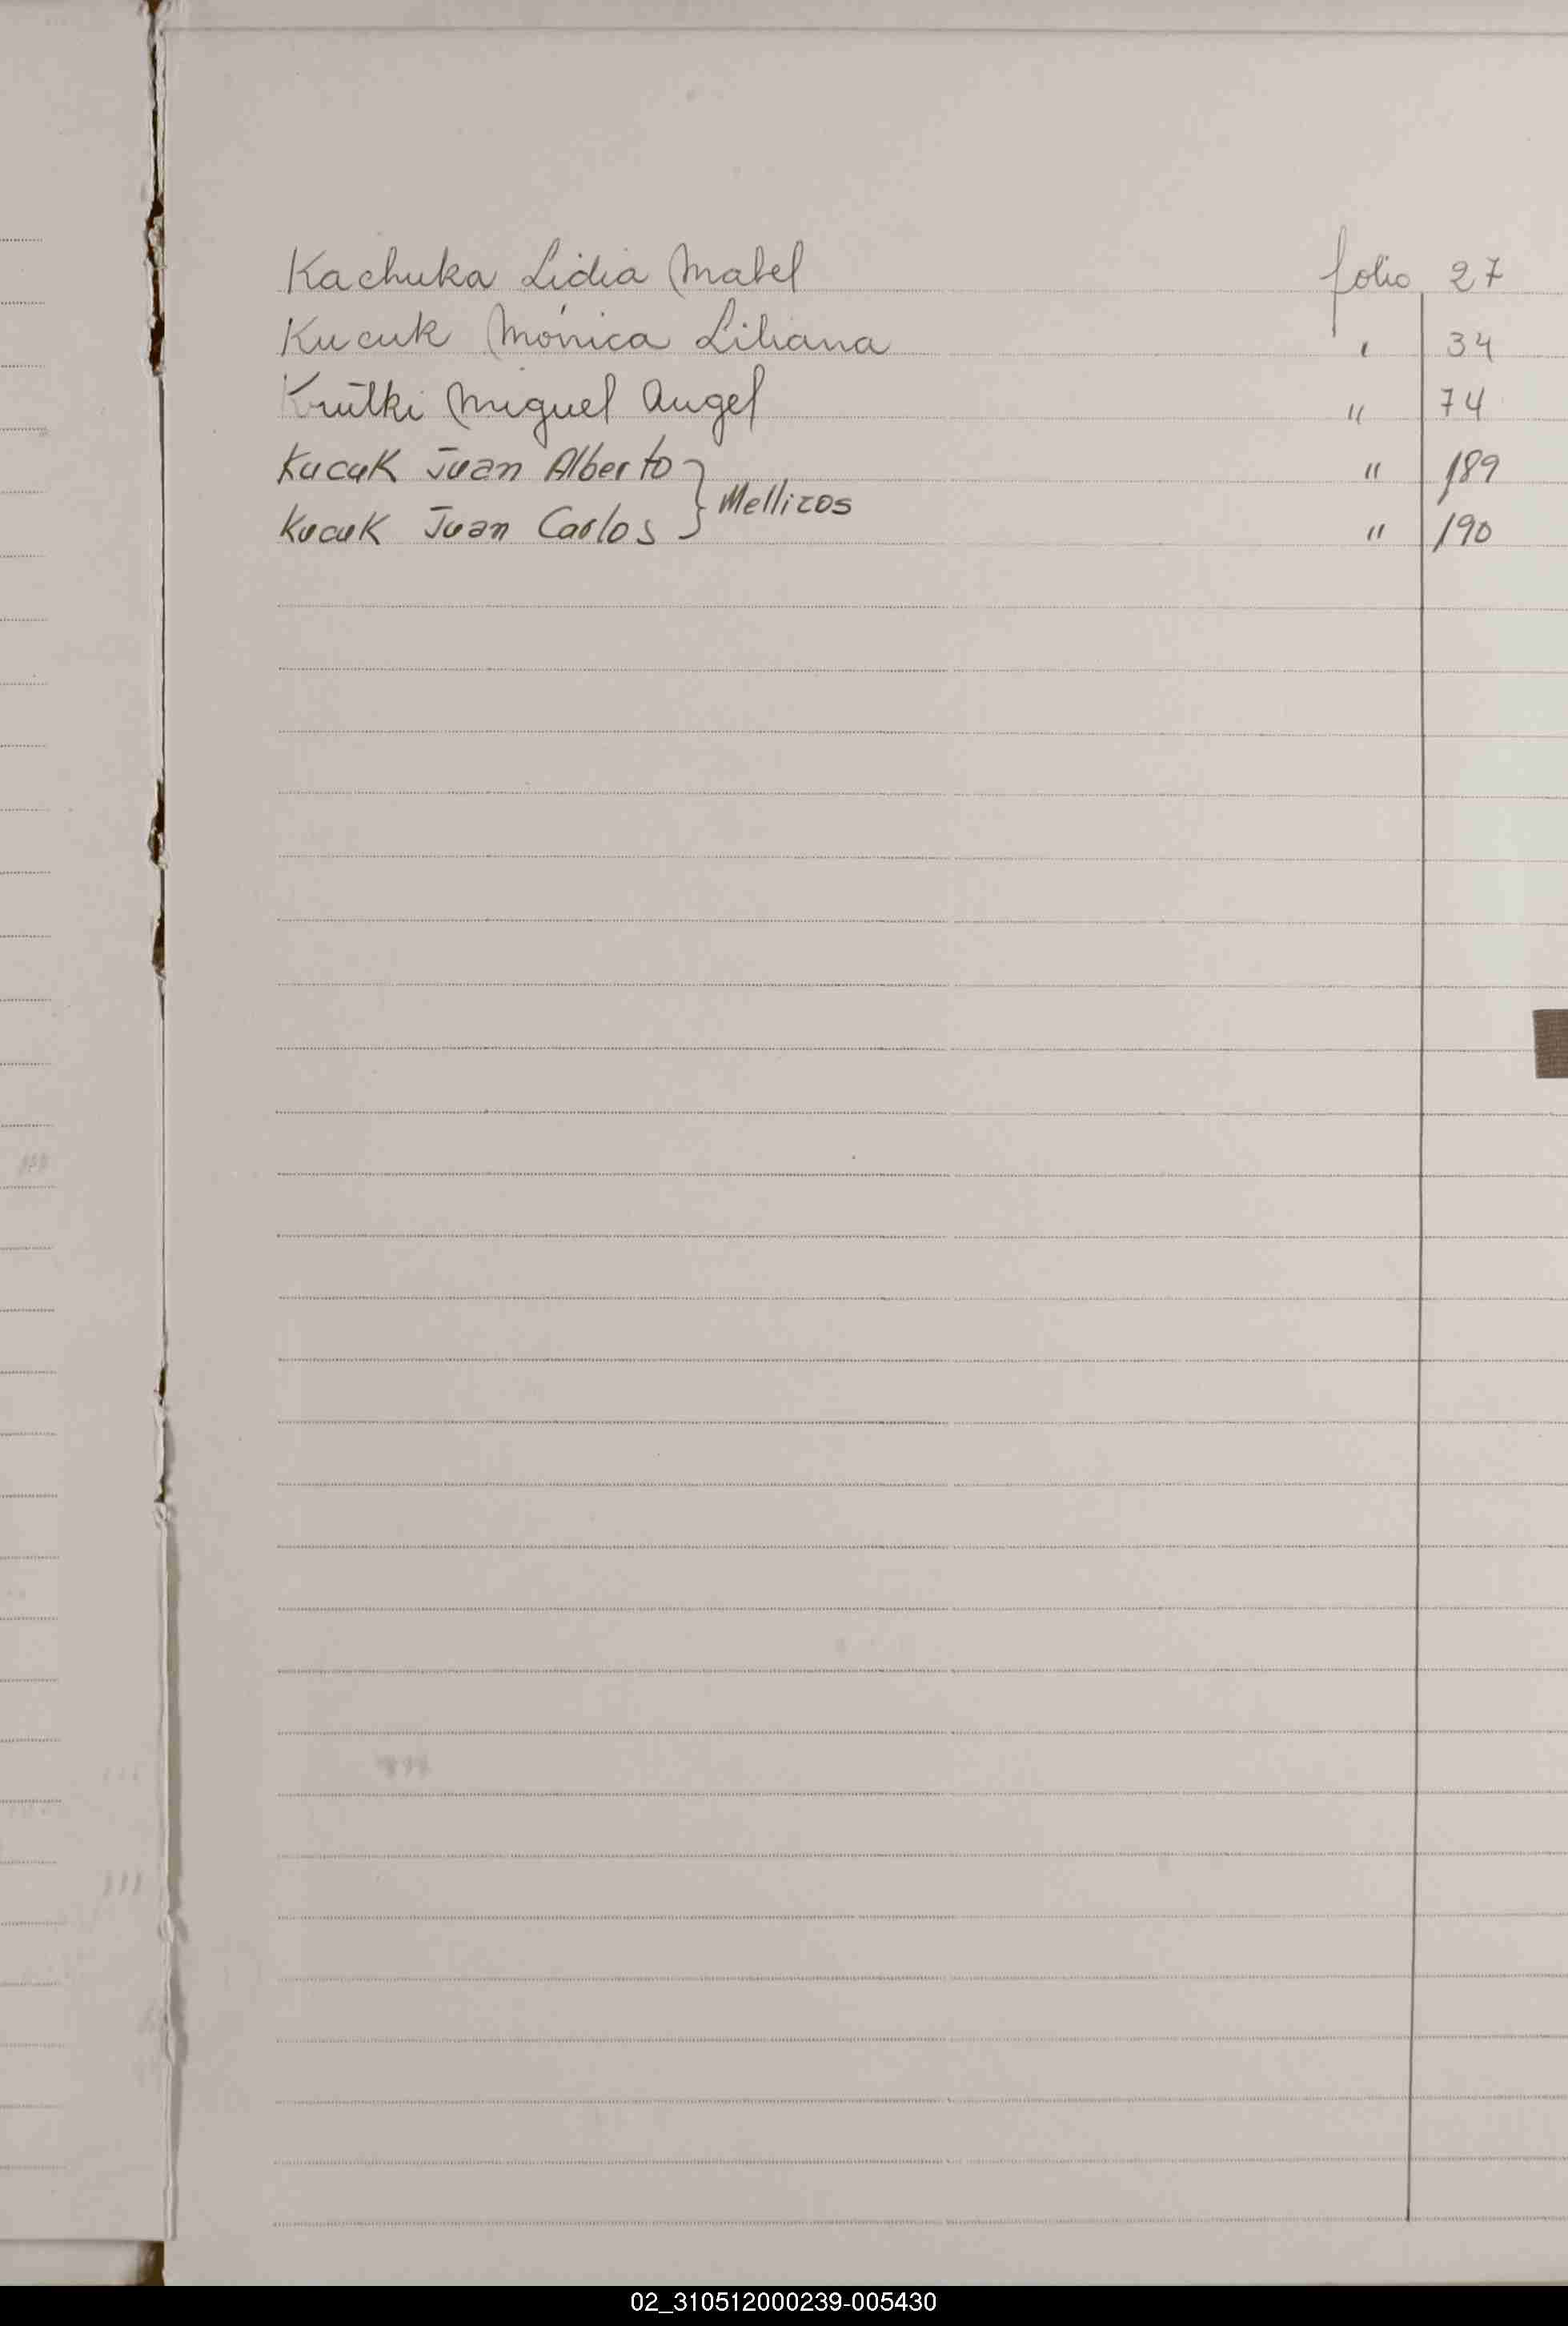 Kachuka Lidia Mabel folio 27
Kucuk Mónica Liliana " 34
Krutki Miguel Angel " 74
Kucuk Juan Alberto } " 189
Mellizos
Kucuk Juan Carlos } " 190
02_310512000239-005430